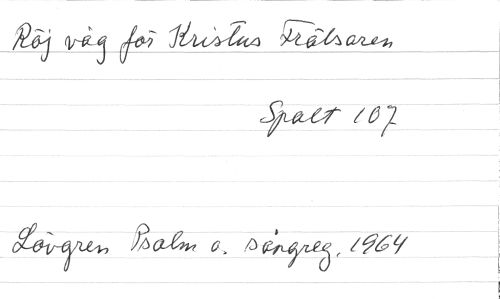 Röj väg för Kristus Frälsaren
Spalt 107
Lövgren Psalm o. sångreg. 1964